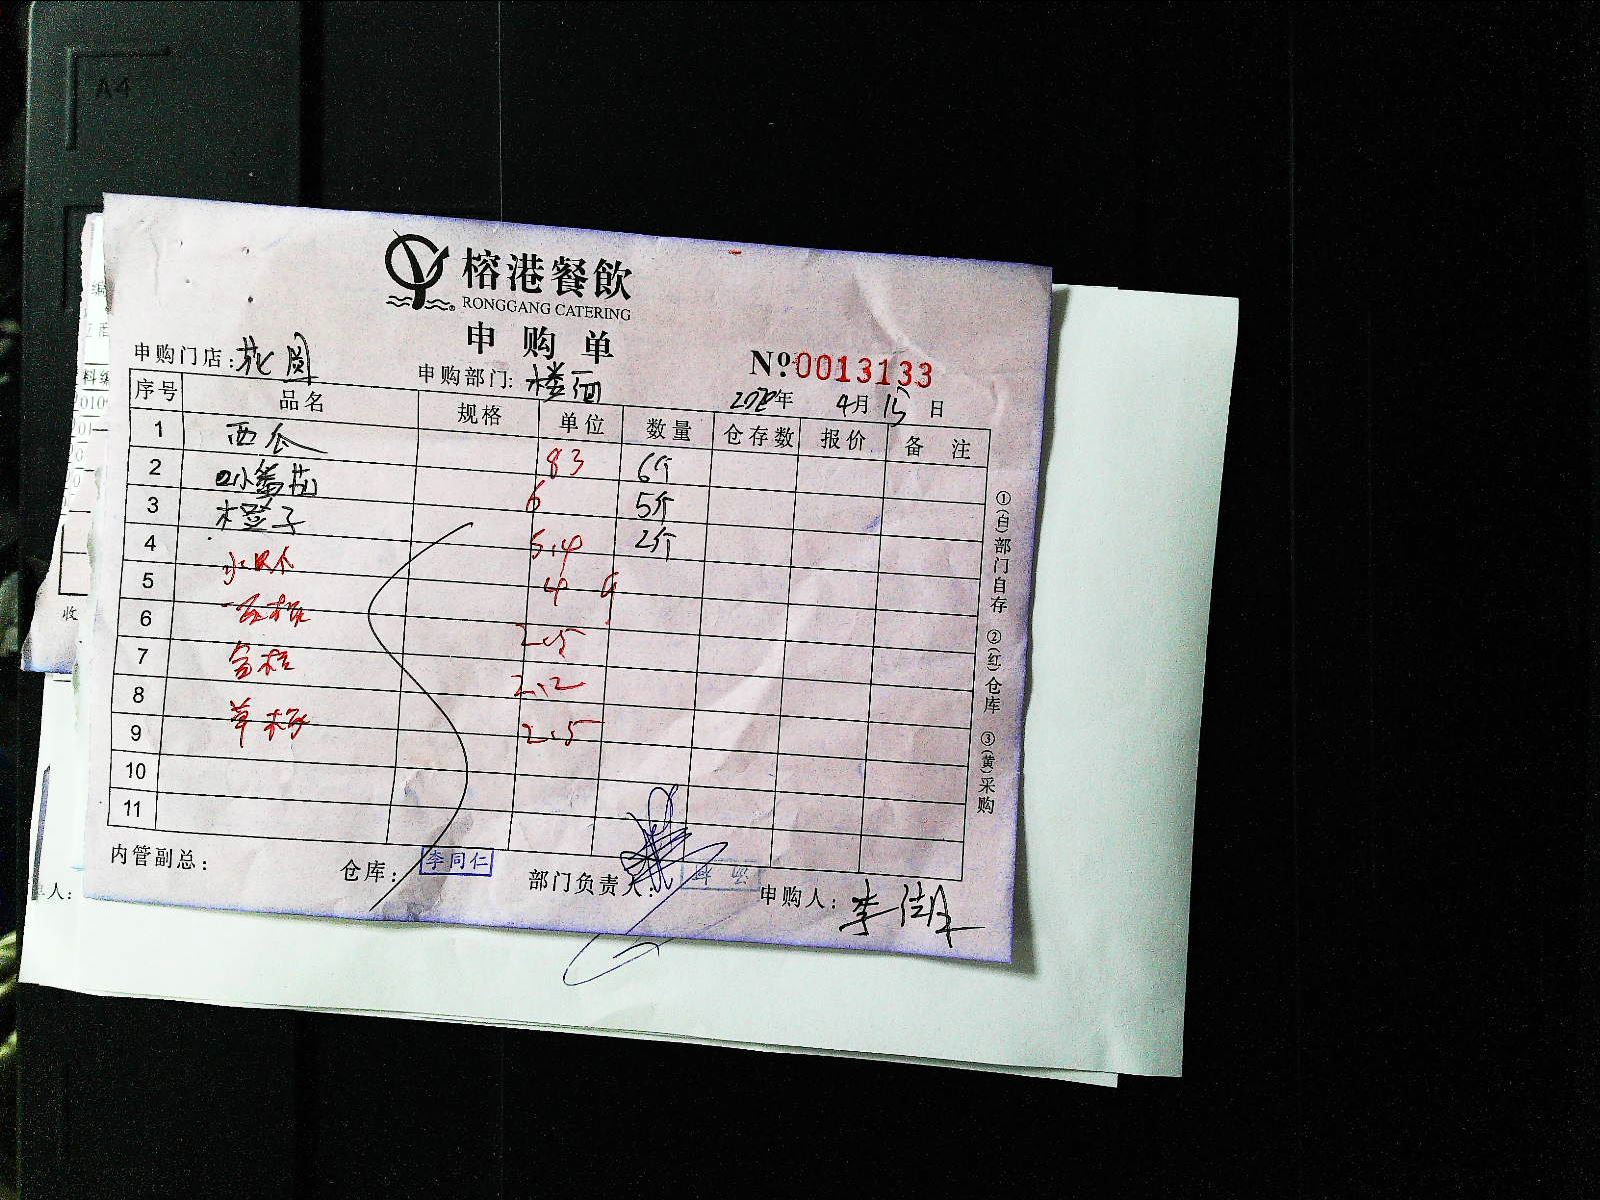 A4
榕港餐飲
RONGGANG CATERING
申购单
申购门店:花园
申购部门:楼面
№0013133
2020年 4月 15日
序号 品名 规格 单位 数量 仓存数 报价 备注
1 西瓜 83 6个
2 小番茄 6 5斤
3 橙子 5.4 2个
4
5
6 2.5
7 2.2
8 2.5
9
10
11
内管副总:
仓库: 李同仁
部门负责人:
申购人: 李
①(白)部门自存 ②(红)仓库 ③(黄)采购
料编
收
人: